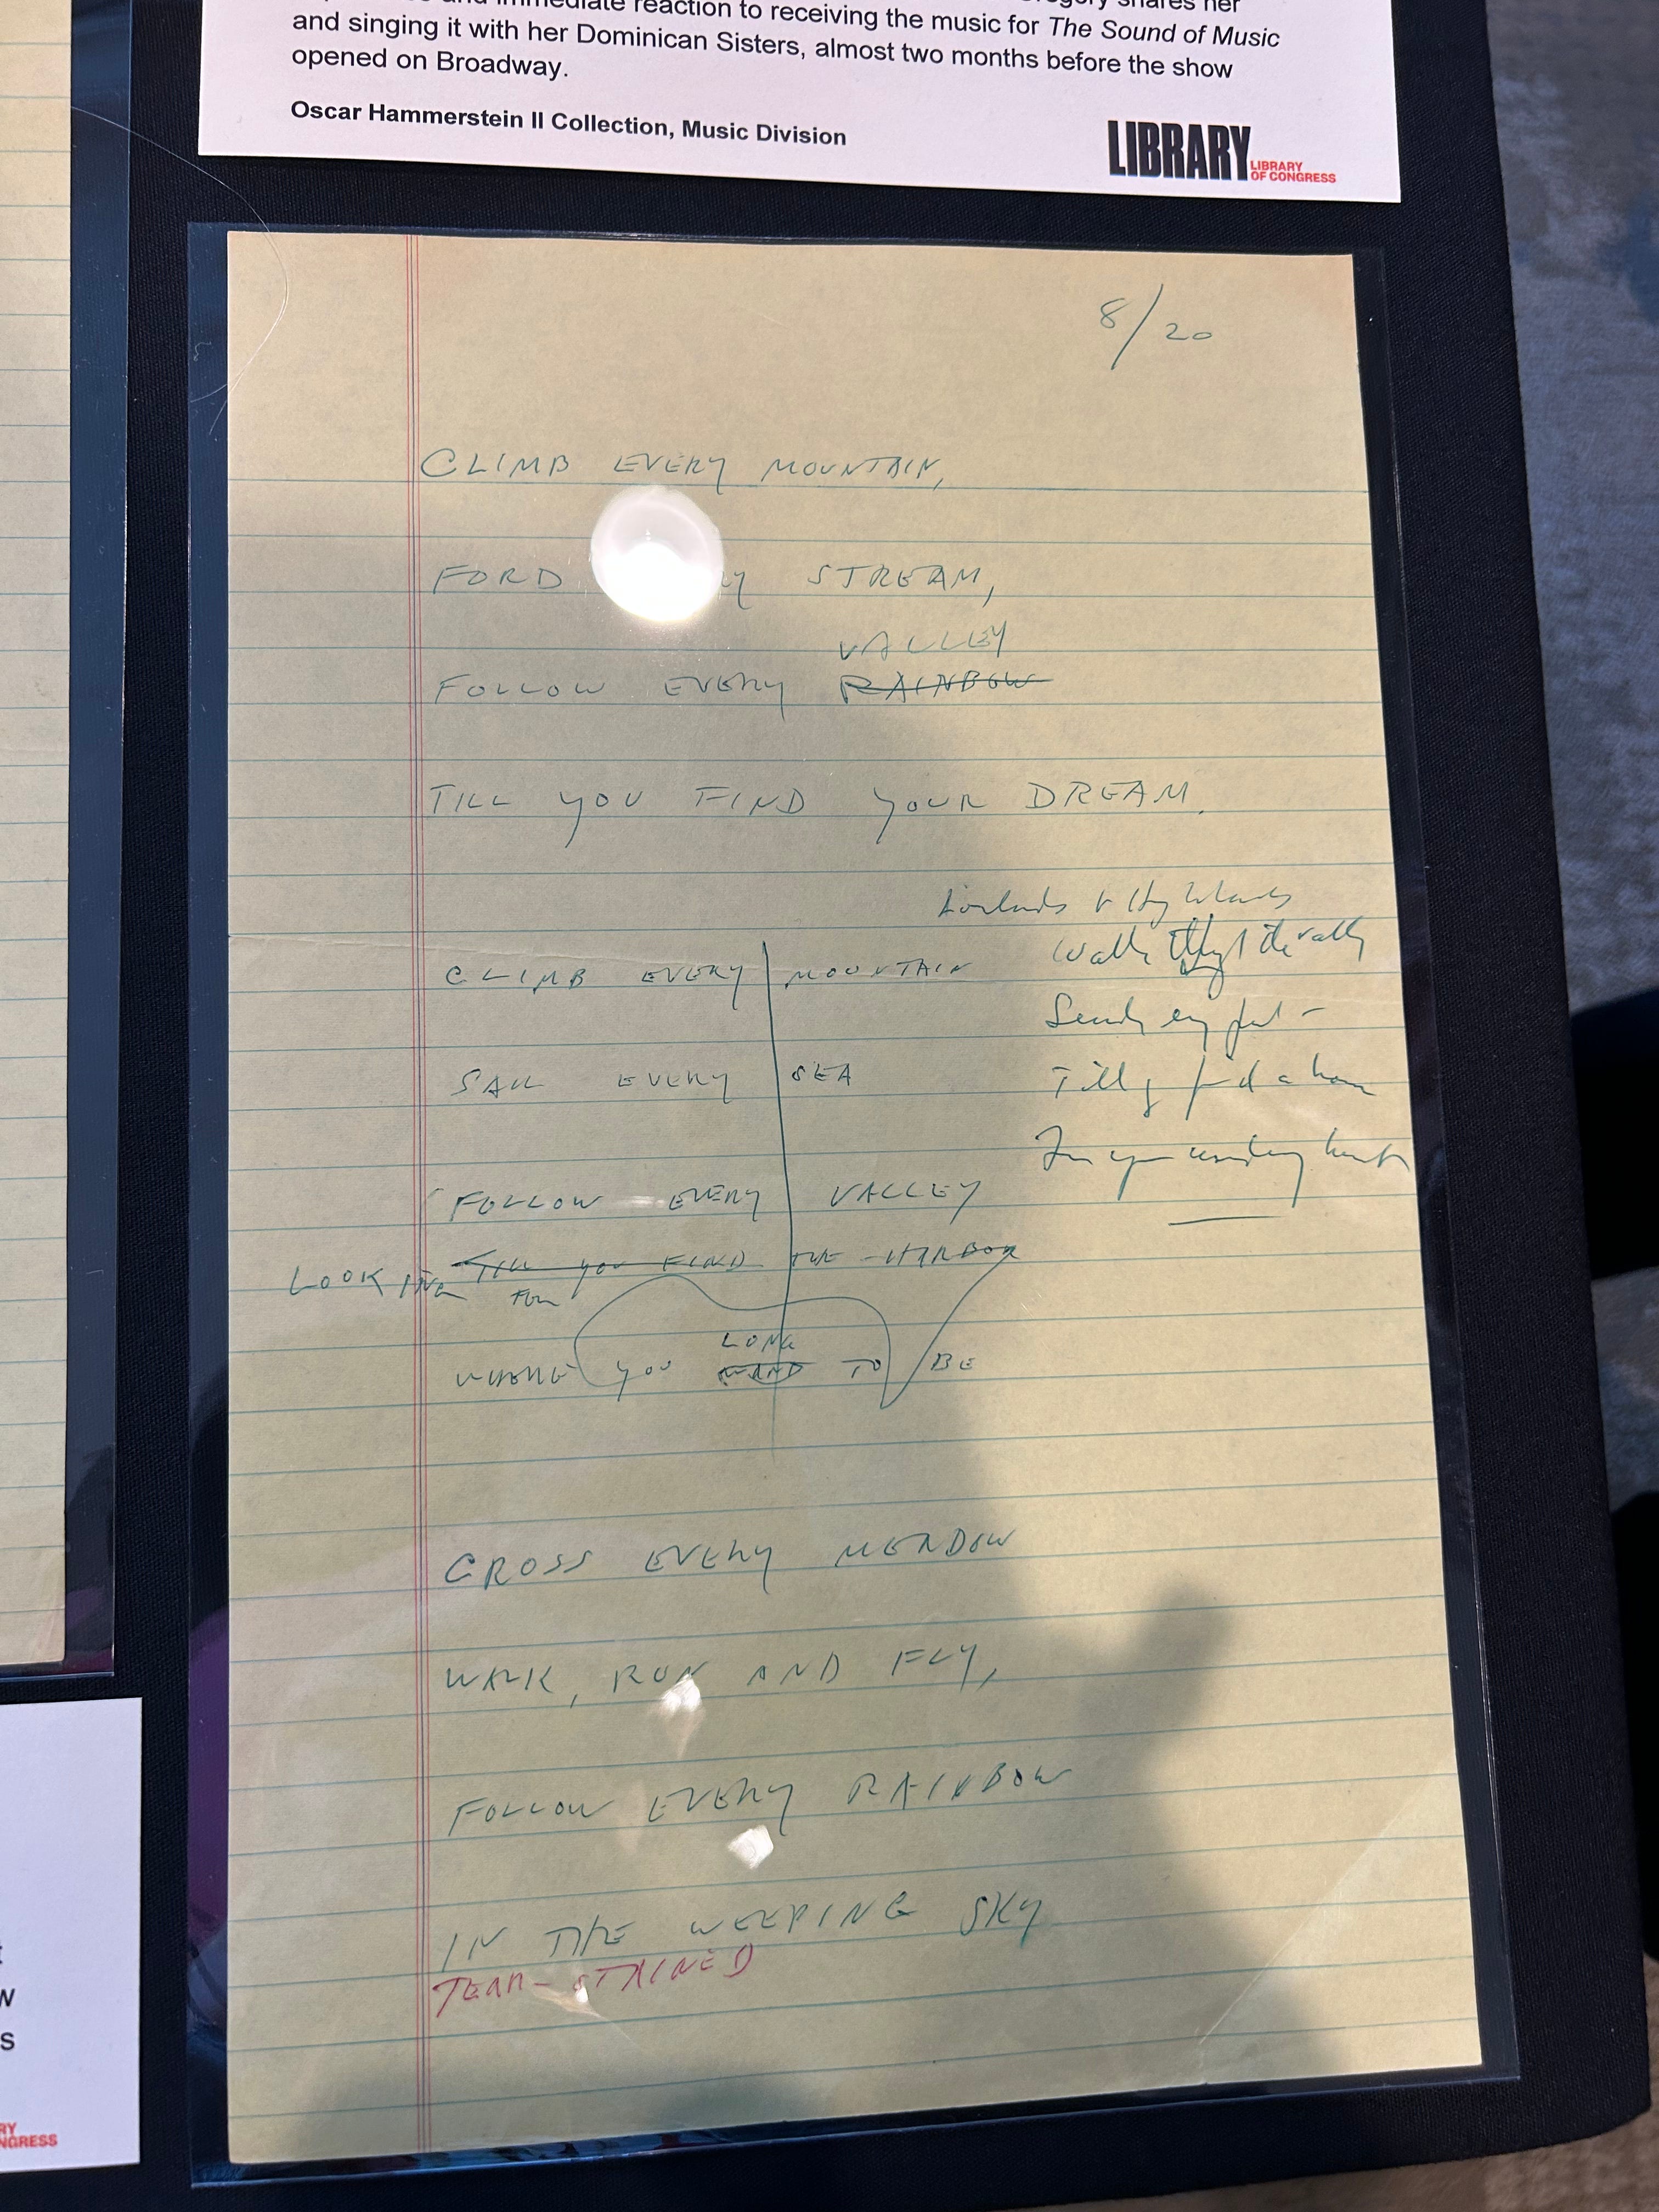 reaction to receiving the music for The Sound of Music
and singing it with her Dominican Sisters, almost two months before the show
opened on Broadway.
Oscar Hammerstein II Collection, Music Division
LIBRARY
LIBRARY
OF CONGRESS
8/20
CLIMB EVERY MOUNTAIN,
FORD STREAM,
VALLEY
FOLLOW EVERY RAINBOW
TILL YOU FIND YOUR DREAM.
CLIMB EVERY MOUNTAIN
SAIL EVERY SEA
Till find a
FOLLOW EVERY VALLEY
TILL YOU FIND THE HARBOR
LOOKING
FOR
LONG
WHERE YOU TO BE
CROSS EVERY MEADOW
WALK, RUN AND FLY,
FOLLOW EVERY RAINBOW
IN THE WEEPING SKY
TEAR-STAINED